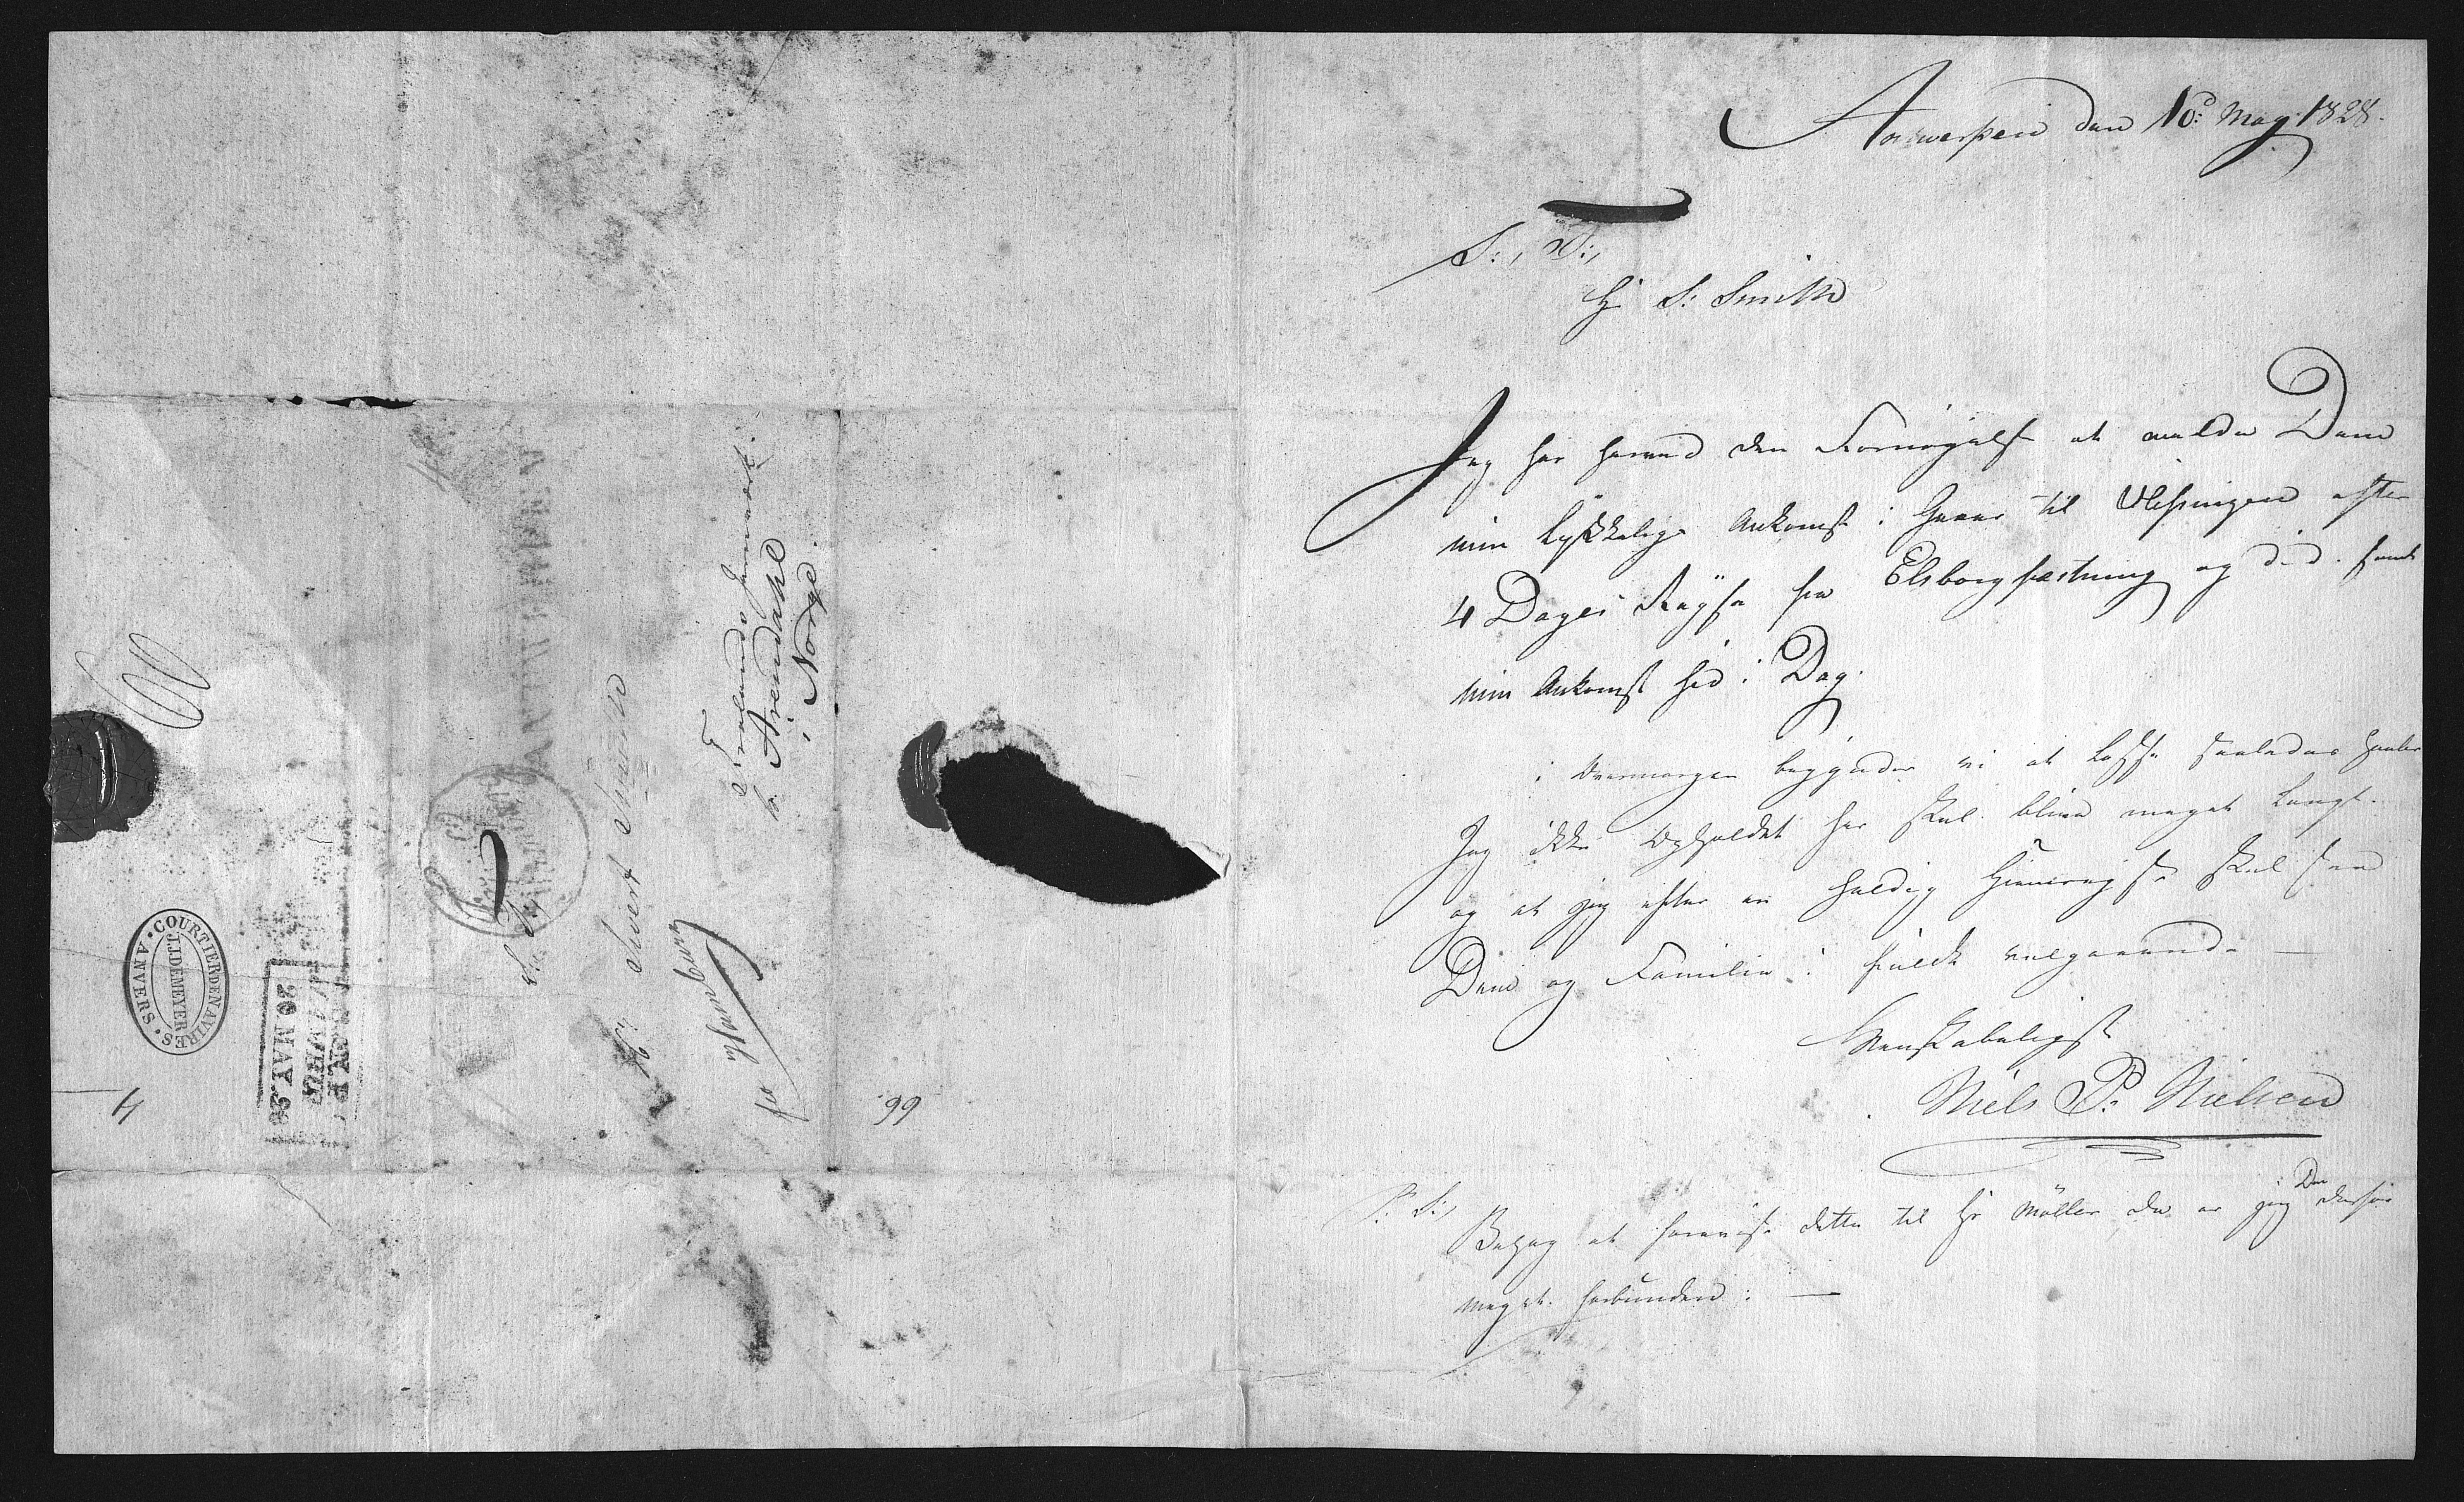 Antwerpen den 16d: May 1828.
S:, T:,
Hr S: Smith
Jeg har herved den Fornøyelse at melde Dem
min lykkelige Ankomst i Gaar til Vlissingen efter
4 Dages Reyse fra Elsborg fæstning og d: d: samt
min Ankomst hid i Dag.
i Overmorgen begynder vi at Losse saaledes haaber
Jeg ikke Opholdet her skal blive meget Langt.
og at jeg efter en heldig Hiemreyse skal see
Dem og Familie i fuldt velgaaende —
Venskabeligst
Niels P: Nielsen
P: S:, Behag at fremvise dette til Hr Møller da er jeg Dem derfor
meget forbunden: —
Hr Sivert Smith
Froelands Jernværk.
b. Arendahl
i Norge.
fr Hamburg
99
COURTIER DE NAVIRES
J.J. DEMEYER
ANVERS
20 MAY. 28
4